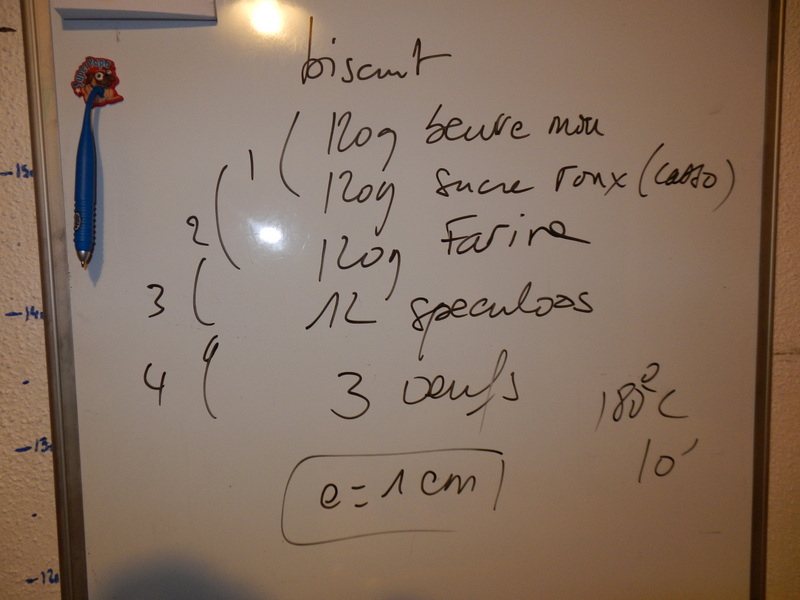 biscuit
1 ( 120g beurre mou
120g sucre roux (casso)
2 ( 120g Farine
3 ( 12 speculoos
4 ( 3 oeufs
180°C
10'
e = 1 cm
14
13
12